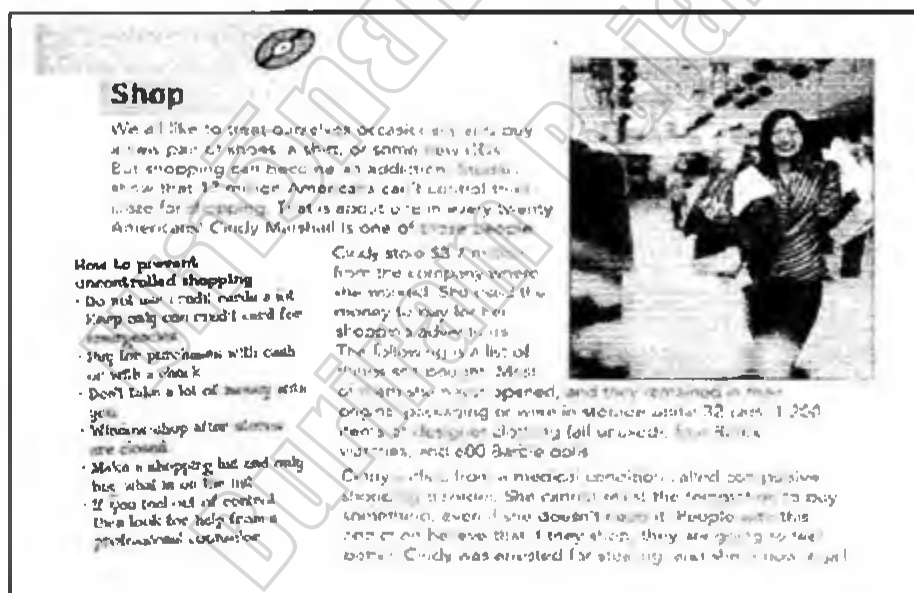 Shop
We all like to treat ourselves occasionally and buy
a new pair of shoes, a shirt, or some new CDs.
But shopping can become an addiction. Studies
show that 17 million Americans can't control their
for shopping. That is about one in every twenty
Americans! Cindy Marshall is one of these people.
How to prevent
uncontrolled shopping
· Do not use credit cards a lot
Keep only one credit card for
emergencies
· Pay for purchases with cash
or with a check
· Don't take a lot of money with
you
· Window-shop after stores
are closed
· Make a shopping list and only
buy what is on the list
· If you feel out of control
then look for help from a
professional counselor
Cindy stole $3.7
from the company where
she worked. She used the
money to pay for her
shopping adventures.
The following is a list of
things she bought. Most
of them she never opened, and they remained in their
original packaging or were in storage
items of designer clothing (all unused),
watches, and 600 Barbie dolls
Cindy suffers from a medical condition called compulsive
shopping disorder. She cannot resist the temptation to buy
something, even if she doesn't need it. People with this
believe that if they shop, they are going to feel
better. Cindy was arrested for stealing, and she is now in jail